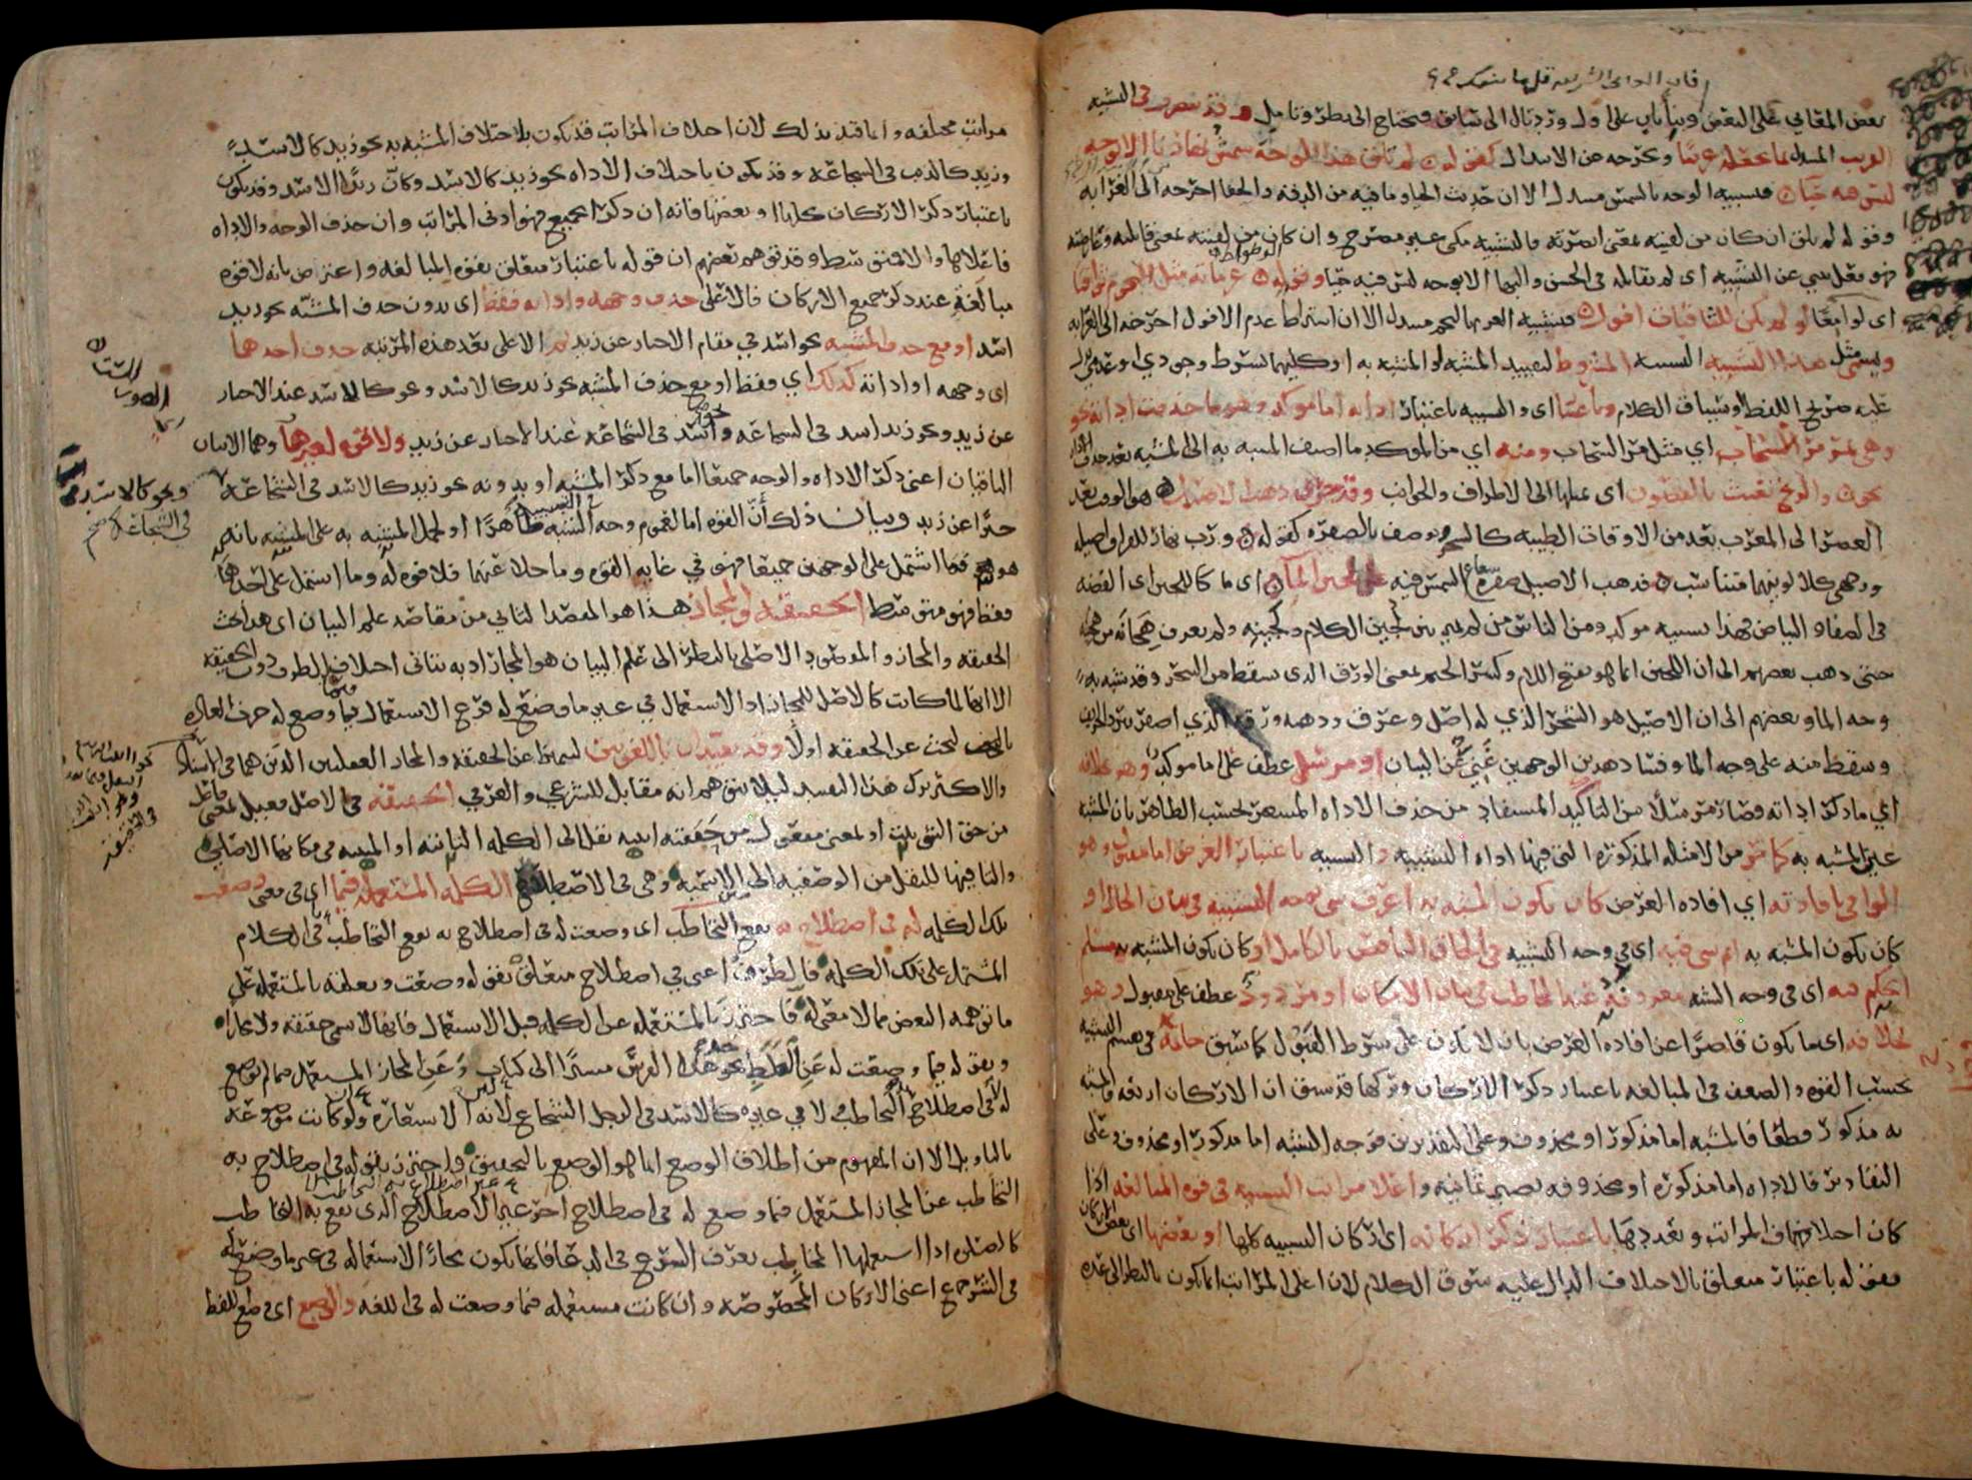 بعض المعاني على البعض وبناء ثان على اول ورد تال الى سابق ويحتاج الى نظر وتامل وقد يتصرف في التشبيه
القريب المبتذل بما يجعله غريبا ويخرجه عن الابتذال كقوله لم تلق هذا الوجه شمس نهارنا الا بوجه
ليس فيه حياء فتشبيه الوجه بالشمس مبتذل الا ان حديث الحياء وما فيه من الدقة والخفا اخرجه الى الغرابه
وقوله لم تلق ان كان من لقيته بمعنى ابصرته فالتشبيه مكني غير مصرح وان كان من لقيته بمعنى قابلته وعارضته
فهو فعل ينبي عن التشبيه اى لم يقابله في الحسن والبها الا بوجه ليس فيه حيا وقوله عزماته مثل النجوم ثواقبا
اى لوامعا لو لم يكن للثاقبات افول فتشبيه العزم بالنجم مبتذل الا ان اشتراط عدم الافول اخرجه الى الغرابه
ويسمى مثل هذا التشبيه التشبيه المشروط لتقييد المشبه او المشبه به او كليهما بشرط وجودي او عدمي يدل
عليه صريح اللفظ او سياق الكلام وباعتبار اى والتشبيه باعتبار اداته اما موكد وهو ما حذفت اداته نحو
وهي تمر مر السحاب اي مثل مر السحاب ومنه اي من الموكد ما اضيف المشبه به الى المشبه بعد حذف الاداة
نحو والريح تعبث بالغصون اى تميلها الى الاطراف والجوانب وقد جرى ذهب الاصيل هو الوقت بعد
العصر الى المغرب يعد من الاوقات الطيبه كالسحر ويوصف بالصفره كقوله ورب نهار للفراق اصيله
ووجهي كلا لونيهما متناسب فذهب الاصيل صفرة شعاع الشمس فيه على لجين الماء اى ماء كاللجين اى الفضه
في الصفاء والبياض فهذا تشبيه موكد ومن الناس من لم يميز بين لجين الكلام ولجينه ولم يعرف هجانه من هجينه
حتى ذهب بعضهم الى ان اللجين انما هو بفتح اللام وكسر الجيم بمعنى الورق الذى يسقط من الشجر وقد شبه به
وجه الماء وبعضهم الى ان الاصيل هو الشجر الذي له اصل وعرق وذهبه ورقه الذي اصفر ببرد الخريف
وسقط منه على وجه الماء وفساد هذين الوجهين غني عن البيان او مرسل عطف على اما موكد وهو بخلافه
اي ما ذكر اداته فصار مرسلا من التاكيد المستفاد من حذف الاداه المشعر بحسب الظاهر بان المشبه
عين المشبه به كما مر من الامثله المذكورة التى فيها اداه التشبيه والتشبيه باعتبار الغرض اما مقبول وهو
الوافي بافادته اي افادة الغرض كان يكون المشبه به اعرف شي بوجه التشبيه في بيان الحال او
كان يكون المشبه به اتم شي فيه اى في وجه التشبيه في الحاق الناقص بالكامل او كان يكون المشبه به مسلم
الحكم فيه اى في وجه الشبه معروفه عند المخاطب في بيان الامكان او مردود عطف على مقبول وهو
بخلافه اى ما يكون قاصرا عن افاده الغرض بان لا يكون على شرط القبول كما سبق خاتمه في تقسيم التشبيه
بحسب القوه والضعف في المبالغه باعتبار ذكر الاركان وتركها قد سبق ان الاركان اربعه والمشبه
به مذكور قطعا فالمشبه اما مذكور او محذوف وعلى التقديرين فوجه الشبه اما مذكور او محذوف وعلى
التقادير فالاداه اما مذكوره او محذوفه يصير ثمانيه واعلا مراتب التشبيه في قوه المبالغه اذا
كان اختلافها في المراتب وتعددها باعتبار ذكر اركانه اى اركان التشبيه كلها او بعضها اى بعض الاركان
فقوله باعتبار متعلق بالاختلاف الدال عليه سوق الكلام لان اعلى المراتب انما يكون بالنظر الى عدة
مراتب مختلفه وانما قيد بذلك لان اختلاف المراتب قد يكون باختلاف المشبه به نحو زيد كالاسد
وزيد كالذئب في الشجاعه وقد يكون باختلاف الاداه نحو زيد كالاسد وكان زيدا الاسد وقد يكون
باعتبار ذكر الاركان كلها او بعضها فانه ان ذكر الجميع فهو ادنى المراتب وان حذف الوجه والاداه
فاعلاها والا فمتوسط وقد توهم بعضهم ان قوله باعتبار متعلق بقوه المبالغه واعترض بانه لا قوه
مبالغة عند ذكر جميع الاركان فالاعلى حذف وجهه واداته فقط اى بدون حذف المشبه نحو زيد
اسد او مع حذف المشبه نحو اسد في مقام الاخبار عن زيد ثم الاعلى بعد هذه المرتبه حذف احدهما
اى وجهه او اداته كذلك اي فقط او مع حذف المشبه نحو زيد كالاسد ونحو كالاسد عند الاخبار
عن زيد ونحو زيد اسد في الشجاعه ونحو اسد في الشجاعه عند الاخبار عن زيد ولا قوة لغيرهما وهما الاثنان
الباقيان اعني ذكر الاداه والوجه جميعا اما مع ذكر المشبه او بدونه نحو زيد كالاسد في الشجاعه
خبرا عن زيد وبيان ذلك أن القوه اما لعموم وجه الشبه ظاهرا او لحمل المشبه به على المشبه بانه
هو هو فما اشتمل على الوجهين جميعا فهو في غايه القوه وما خلا عنهما فلا قوه له وما اشتمل على احدهما
فقط فهو متوسط الحقيقة والمجاز هذا هو المقصد الثاني من مقاصد علم البيان اى هذا بحث
الحقيقه والمجاز والمقصود الاصلي بالنظر الى علم البيان هو المجاز اذ به يتاتى اختلاف الطرق دون الحقيقه
الا انها لما كانت كالاصل للمجاز اذ الاستعمال في غير ما وضع له فرع الاستعمال فيما وضع له جرت العاده
بالبحث عن الحقيقه اولا وقد يقيدان باللغويين ليتميزا عن الحقيقه والمجاز العقليين الذين هما في الاسناد
والاكثر ترك هذا التقييد ليلا يتوهم انه مقابل للشرعي والعرفي الحقيقة في الاصل فعيل بمعنى فاعل
من حق الشي ثبت او بمعنى مفعول من حققته اثبته نقل الى الكلمه الثابته او المثبته في مكانها الاصلي
والتا فيها للنقل من الوصفيه الى الاسميه وهي في الاصطلاح الكلمة المستعملة فيما اي في معنى وضعت
تلك الكلمه له في اصطلاح به يقع التخاطب اى وضعت له في اصطلاح به يقع التخاطب في الكلام
المشتمل على تلك الكلمه فالظرف اعني في اصطلاح متعلق بقوله وضعت وتعلقه بالمستعمله على
ما توهمه البعض مما لا معنى له فاحترز بالمستعمله عن الكلمه قبل الاستعمال فانها لا تسمى حقيقه ولا مجازا
وبقوله فيما وضعت له عن الغلط نحو خذ هذا الفرس مشيرا الى كتاب وعن المجاز المستعمل فيما لم يوضع
له في اصطلاح التخاطب ولا في غيره كالاسد في الرجل الشجاع لان الاستعارة ولو كانت موضوعه
بالتاويل الا ان المفهوم من اطلاق الوضع انما هو الوضع بالتحقيق واحترز بقوله في اصطلاح به
التخاطب عن المجاز المستعمل فيما وضع له في اصطلاح اخر غير الاصطلاح الذى يقع به التخاطب
كالصلاة اذا استعملها المخاطب بعرف الشرع في الدعا فانها يكون مجازا لاستعماله في غير ما وضع له
في الشرع اعنى الاركان المخصوصه وان كانت مستعمله فيما وضعت له في اللغه والوضع اى وضع اللفظ
ونحو كالاسد
في الشجاعة